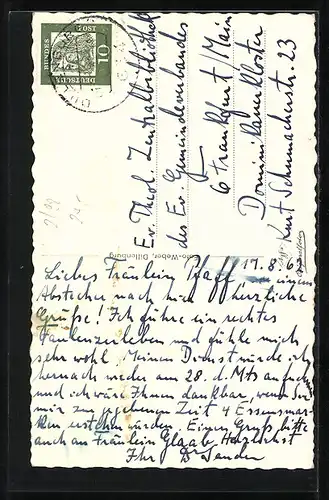 BUNDES
10
Ev. Theol. Zentralbibliothek
des Ev. Gemeindeverbandes
6 Frankfurt/Main
Dominikanerkloster
Kurt Schumacherstr. 23
Foto-Weber, Dillenburg
17.8.62
Liebes Fräulein Pfaff,
einen
Abstecher nach hier herzliche
Grüße! Ich führe ein rechtes
Faulenzerleben und fühle mich
sehr wohl. Meinen Dienst würde ich
hernach wieder am 28. d. Mts
und ich wäre Ihnen dankbar, wenn Sie
mir zur gegebenen Zeit 4 Essensmar-
ken erstehen würden. Einen Gruß bitte
auch an Fräulein Glaab. Herzlichst
Ihr Dr. Sander